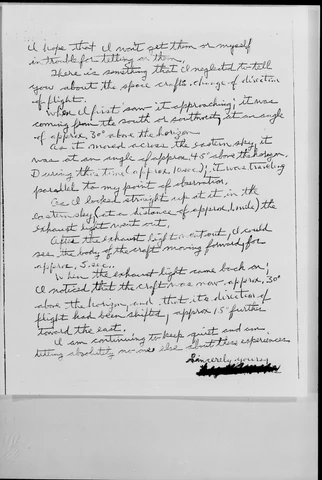 I hope that I won't get them or myself
in trouble for telling on them.
There is something that I neglected to tell
you about the space crafts change of direction
of flight.
When I first saw it approaching; it was
coming from the south or southwest at an angle
of approx. 30° above the horizon.
As it moved across the eastern sky, it
was at an angle of approx. 45° above the horizon.
During this time (approx. 10 sec.); it was traveling
parallel to my point of observation.
As I looked straight up at it, in the
eastern sky (at a distance of approx. 1 mile) the
exhaust light went out.
After the exhaust light went out, I could
see the body of the craft moving forward for
approx. 5 sec.
When the exhaust light came back on;
I noticed that the craft was now approx. 30°
above the horizon, and that its direction of
flight had been shifted, approx 15° further
toward the east.
I am continuing to keep quiet and am
telling absolutely no one else about these experiences.
Sincerely yours,